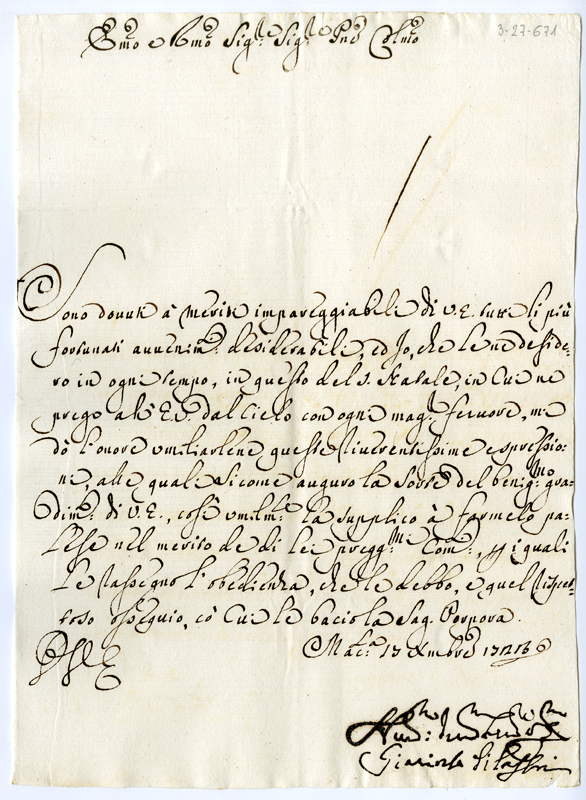 3-27-671
Em̃o e Rm̃o Sig.re Sig.re Pñe Colm̃o
Sono douuti à meriti impareggiabili di V.E. tutti li più
fortunati auuenim.ti desiderabili, ed Io, che le ne deside-
ro in ogni tempo, in questo del S. Natale, in cui ne
prego all'E.V. dal Cielo con ogni mag.r feruore, mi
dò l'onore umiliarlene queste riuerentissime espressio-
ni, alle quali sicome auguro la sorte del benig.mo gra-
dim.to di V.E., così umilm.te la supplico à farmelo pa-
lese nel merito de di lei pregg.mi Com.i, p i quali
Le rassegno l'obedienza, che le debbo, e quel rispet-
toso ossequio, cõ cui le bacio la Sag. Porpora.
Mac.ta 13 Xmbre